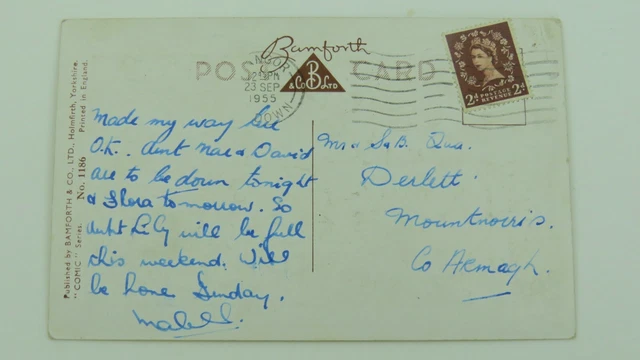 Bamforth
POST CARD
& Co B LTD
12 PM
23 SEP
1955
DOWN
2D POSTAGE REVENUE 2D
Published by BAMFORTH & CO., LTD., Holmfirth, Yorkshire.
"COMIC" Series. No. 1186 Printed in England.
Made my way
O.K. Aunt Mae & David
are to be down tonight
& Flora tomorrow. So
Aunt Lily will be full
this weekend. Will
be home Sunday.
Mabel.
Mr & S & B.
Derlett.
Mountnorris.
Co Armagh.